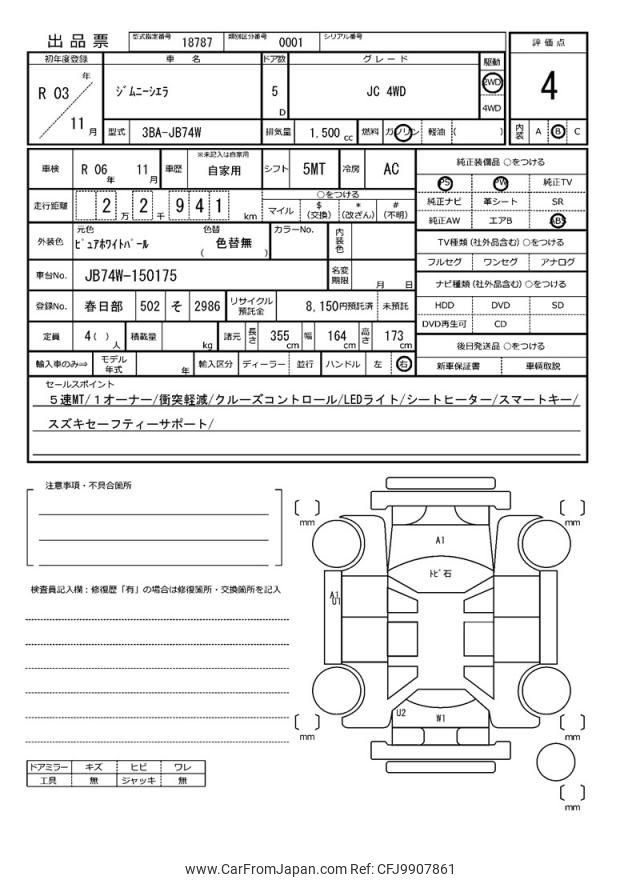 出品票 型式指定番号 18787 類別区分番号 0001 シリアル番号
初年度登録 車名 ドア数 グレード 駆動 評価点
R 03 年 11 月 ジムニーシエラ 5 D JC 4WD 2WD 4WD 4
型式 3BA-JB74W 排気量 1.500 cc 燃料 ガソリン 軽油 ( ) 内装 A B C
車検 R 06 年 11 月 車歴 ※未記入は自家用 自家用 シフト 5MT 冷房 AC 純正装備品 ○をつける
PS PW 純正TV
走行距離 2 万 2 千 9 4 1 km ○をつける マイル $ (交換) * (改ざん) # (不明) 純正ナビ 革シート SR
純正AW エアB ABS
外装色 元色 ピュアホワイトパール 色替 ( 色替無 カラーNo. 内装色 TV種類 (社外品含む) ○をつける
フルセグ ワンセグ アナログ
車台No. JB74W-150175 名変期限 月 日 ナビ種類 (社外品含む) ○をつける
登録No. 春日部 502 そ 2986 リサイクル預託金 8,150円預託済 未預託 HDD DVD SD
DVD再生可 CD
定員 4 ( ) 人 積載量 kg 諸元 長さ 355 cm 幅 164 cm 高さ 173 cm 後日発送品 ○をつける
輸入車のみ⇒ モデル年式 年 輸入区分 ディーラー 並行 ハンドル 左 右 新車保証書 車輌取説
セールスポイント
５速MT/１オーナー/衝突軽減/クルーズコントロール/LEDライト/シートヒーター/スマートキー/
スズキセーフティーサポート/
注意事項・不具合箇所
検査員記入欄：修復歴「有」の場合は修復箇所・交換箇所を記入
[ ] mm [ ] mm
A1
トビ石
A1
U1
U2
W1
[ ] mm [ ] mm
[ ] mm
ドアミラー キズ ヒビ ワレ
工具 無 ジャッキ 無
www.CarFromJapan.com Ref: CFJ9907861